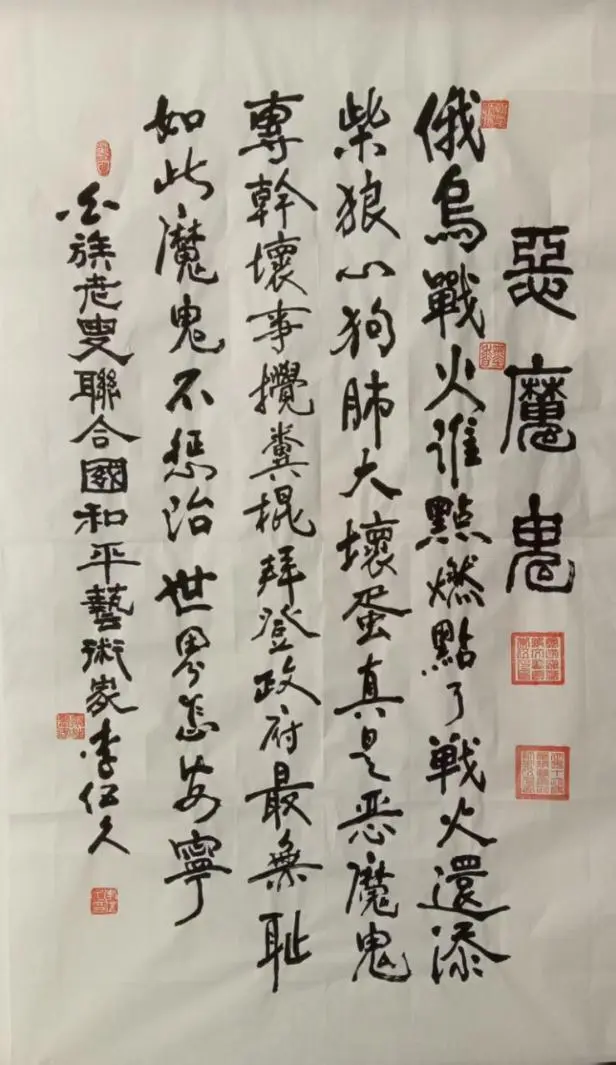 惡魔鬼
俄烏戰火谁點燃點了戰火還添
柴狼心狗肺大壞蛋真是恶魔鬼
專幹壞事攪糞棍拜登政府最無耻
如此魔鬼不惩治世界怎安寧
白族老叟聯合國和平藝術家李伍久